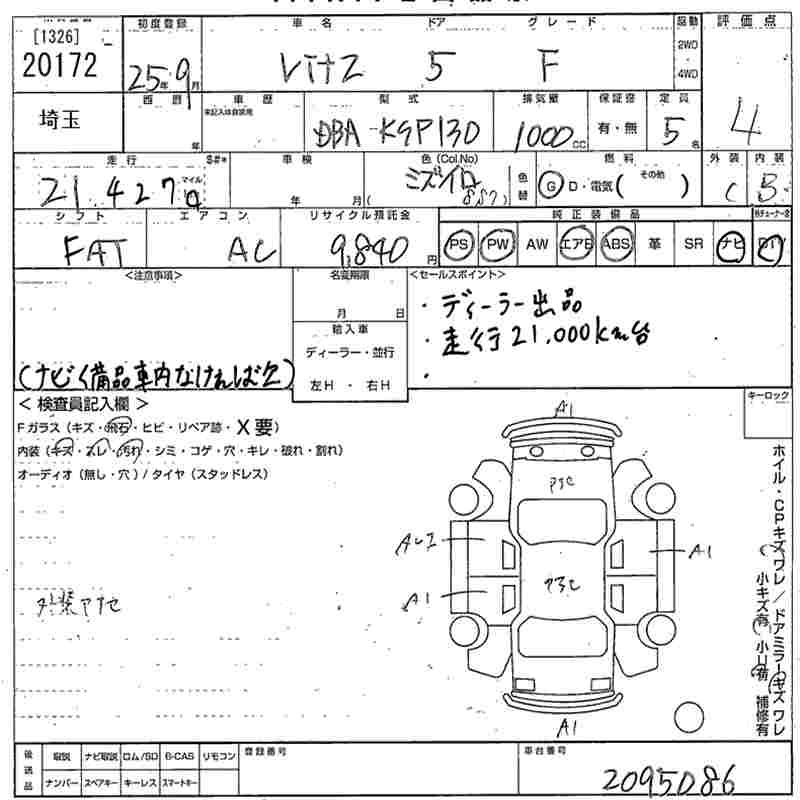 [1326]
20172
初度登録
25年9月
車名
ドア
グレード
駆動
評価点
Vitz 5 F
2WD
4WD
4
埼玉
西暦
年
車歴
未記入は自家用
型式
DBA-KSP130
排気量
1000cc
保証書
有・無
定員
5名
走行
21,427
マイル
$#*
車検
年 月
色(Col.No)
ミズイロ
色替
燃料
G D・電気( その他 )
外装
C
内装
B
シフト
FAT
エアコン
AC
リサイクル預託金
9,840円
純正装備品
PS PW AW エアB ABS 革 SR ナビ
<注意事項>
(ナビ、備品車内なければ欠)
名変期限
月 日
輸入車
ディーラー・並行
左H ・ 右H
<セールスポイント>
・ディーラー出品
・走行21,000km台
・
キーロック
<検査員記入欄>
Fガラス(キズ・飛石・ヒビ・リペア跡・X要)
内装(キズ・スレ・汚れ・シミ・コゲ・穴・キレ・破れ・割れ)
オーディオ(無し・穴)/タイヤ(スタッドレス)
A1
A1
A1
A1
ホイル・CPキズワレ/ドアミラーキズワレ
小キズ有 小U有 補修有
後送品
取説
ナビ取説
ロム/SD
B-CAS
リモコン
ナンバー
スペアキー
キーレス
スマートキー
登録番号
車台番号
2095086